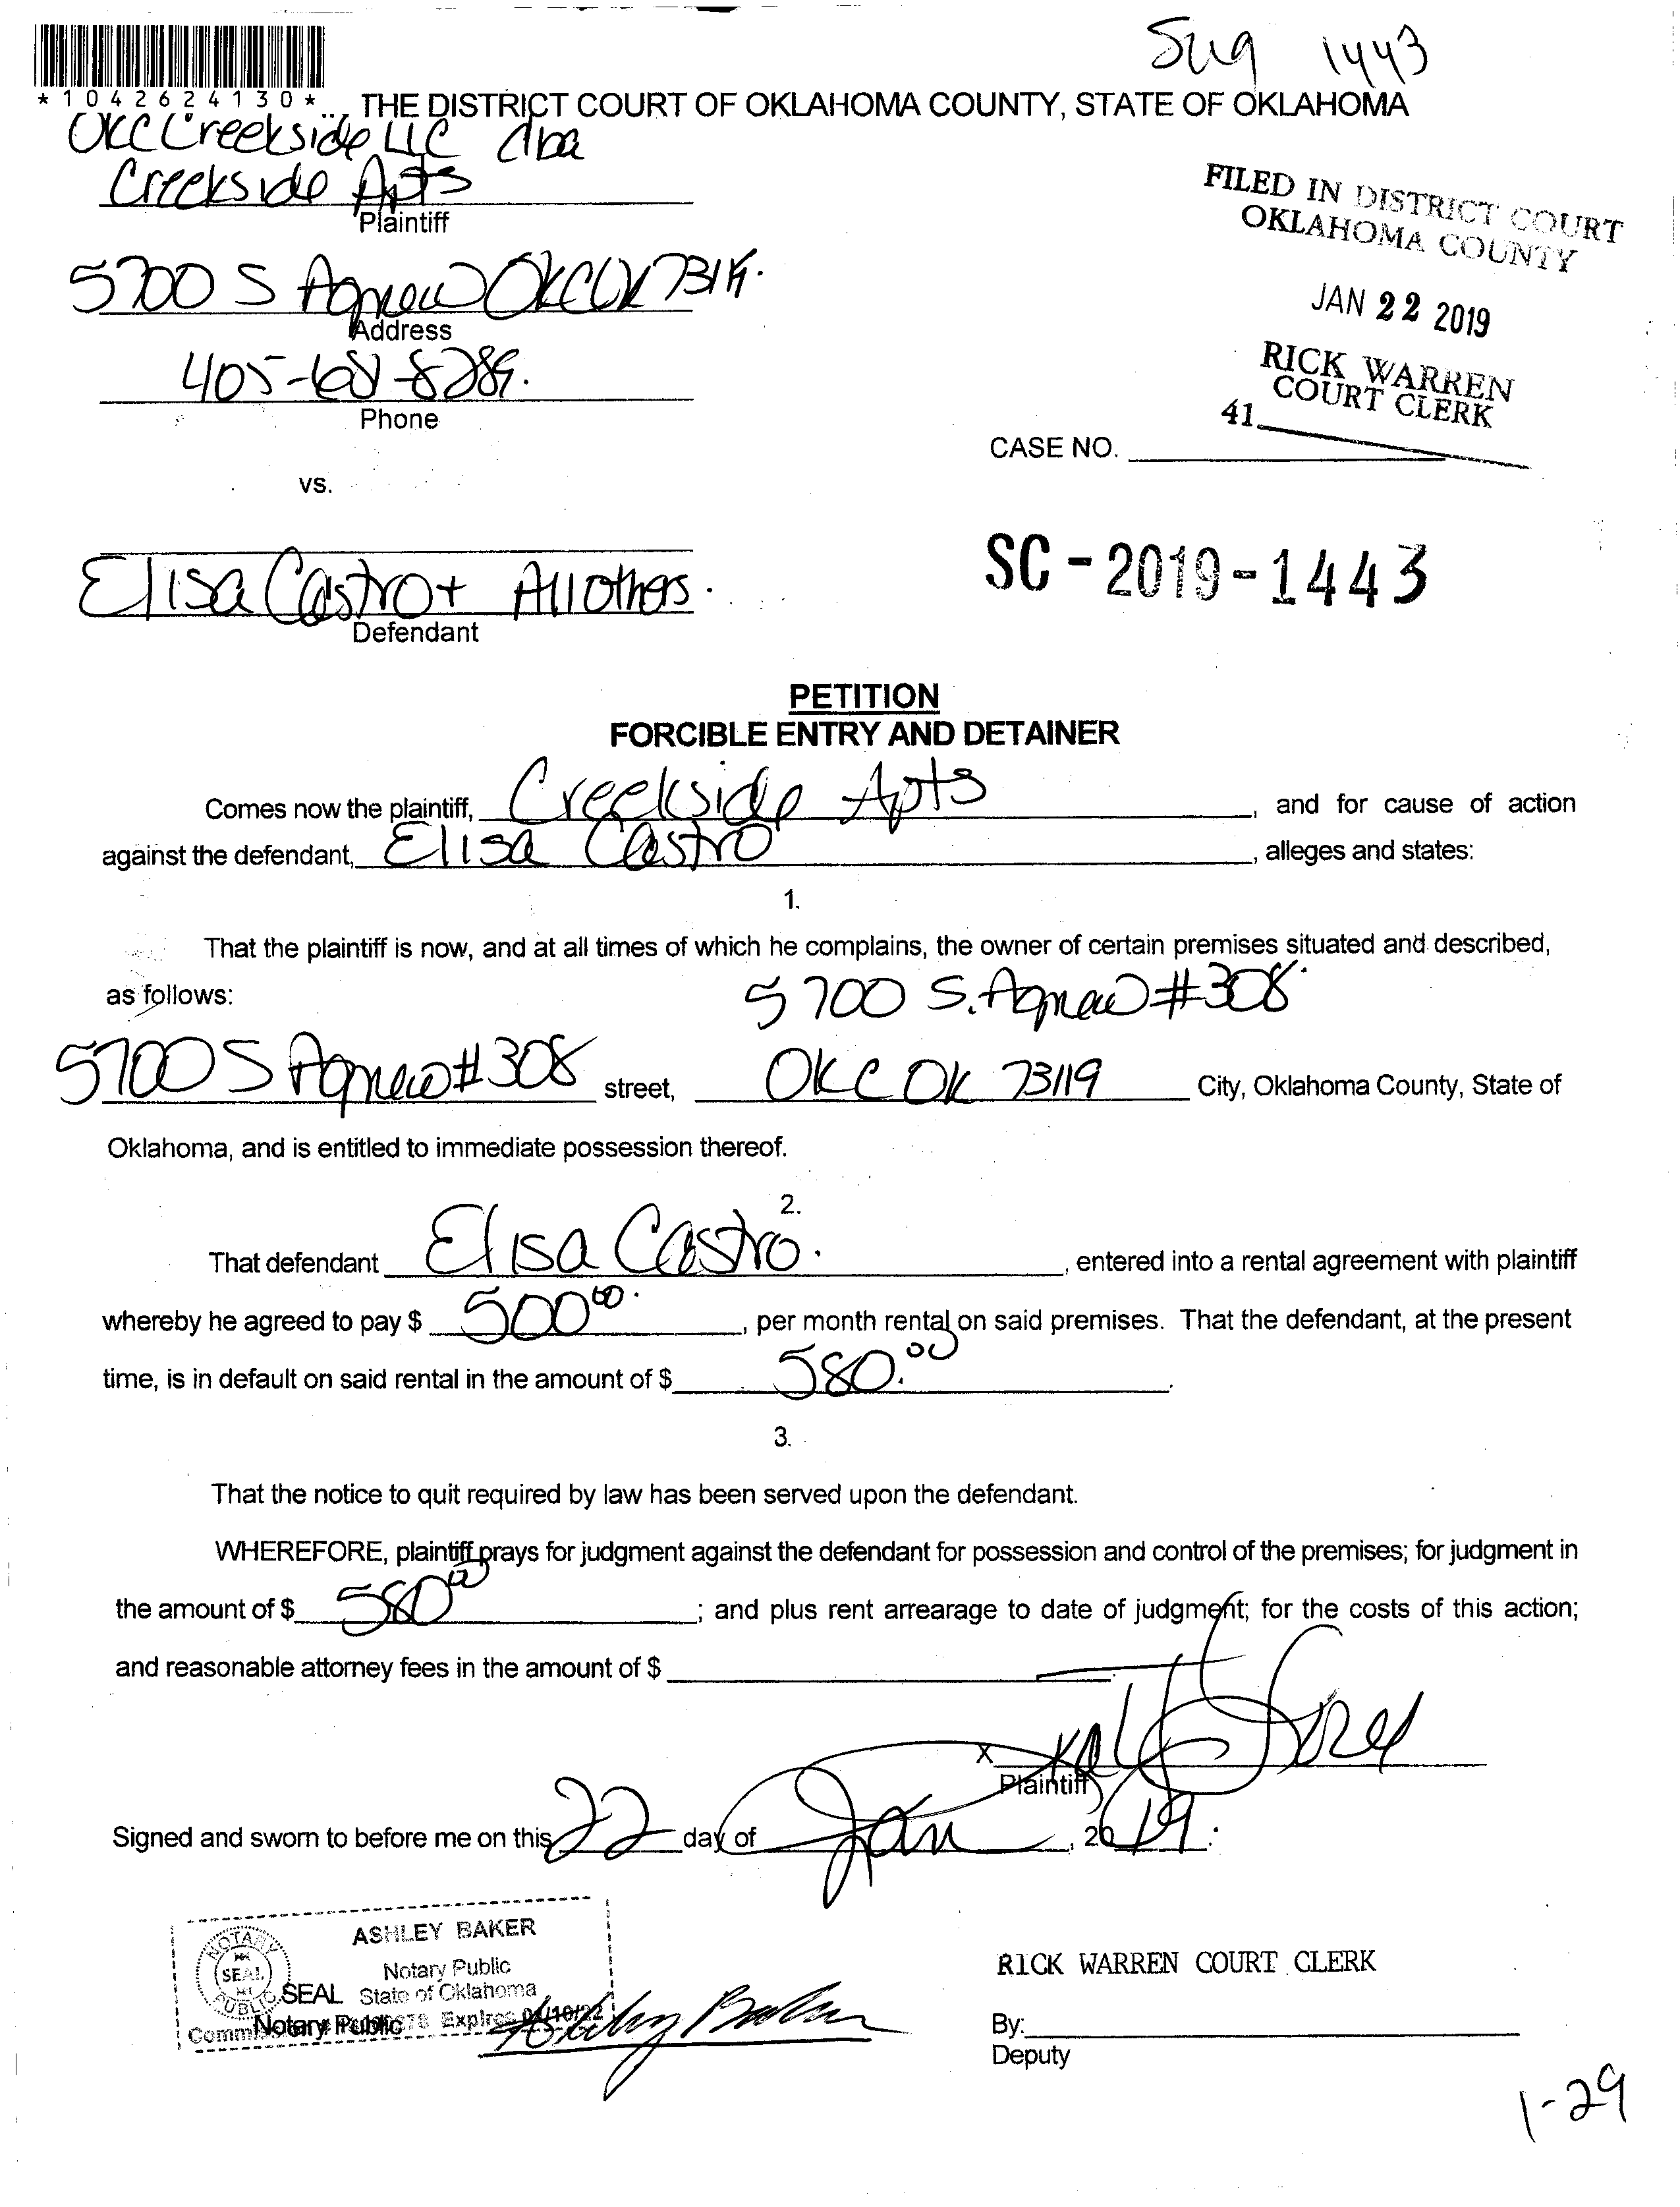 1443
*1042624130*
THE DISTRICT COURT OF OKLAHOMA COUNTY, STATE OF OKLAHOMA
OKC Creekside LLC dba
Creekside Apts
Plaintiff
FILED IN DISTRICT COURT
OKLAHOMA COUNTY
JAN 22 2019
RICK WARREN
COURT CLERK
41
5700 S Agnew OKC OK
Address
405-
Phone
CASE NO.
vs.
SC-2019-1443
Elisa Castro + All others.
Defendant
PETITION
FORCIBLE ENTRY AND DETAINER
Comes now the plaintiff, Creekside Apts, and for cause of action
against the defendant, Elisa Castro, alleges and states:
1.
That the plaintiff is now, and at all times of which he complains, the owner of certain premises situated and described,
as follows: 5700 S. Agnew #308
5700 S Agnew #308 street, OKC OK 73119 City, Oklahoma County, State of
Oklahoma, and is entitled to immediate possession thereof.
2.
That defendant Elisa Castro., entered into a rental agreement with plaintiff
whereby he agreed to pay $ 500 00., per month rental on said premises. That the defendant, at the present
time, is in default on said rental in the amount of $ 580.00.
3.
That the notice to quit required by law has been served upon the defendant.
WHEREFORE, plaintiff prays for judgment against the defendant for possession and control of the premises; for judgment in
the amount of $ 580 00; and plus rent arrearage to date of judgment; for the costs of this action;
and reasonable attorney fees in the amount of $
X
Plaintiff
Signed and sworn to before me on this 22 day of Jan, 2019.
ASHLEY BAKER
Notary Public
State of Oklahoma
NOTARY PUBLIC
SEAL
SEAL
Notary Public
Expires 04/10/22
Ashley Baker
RICK WARREN COURT CLERK
By:
Deputy
1-29